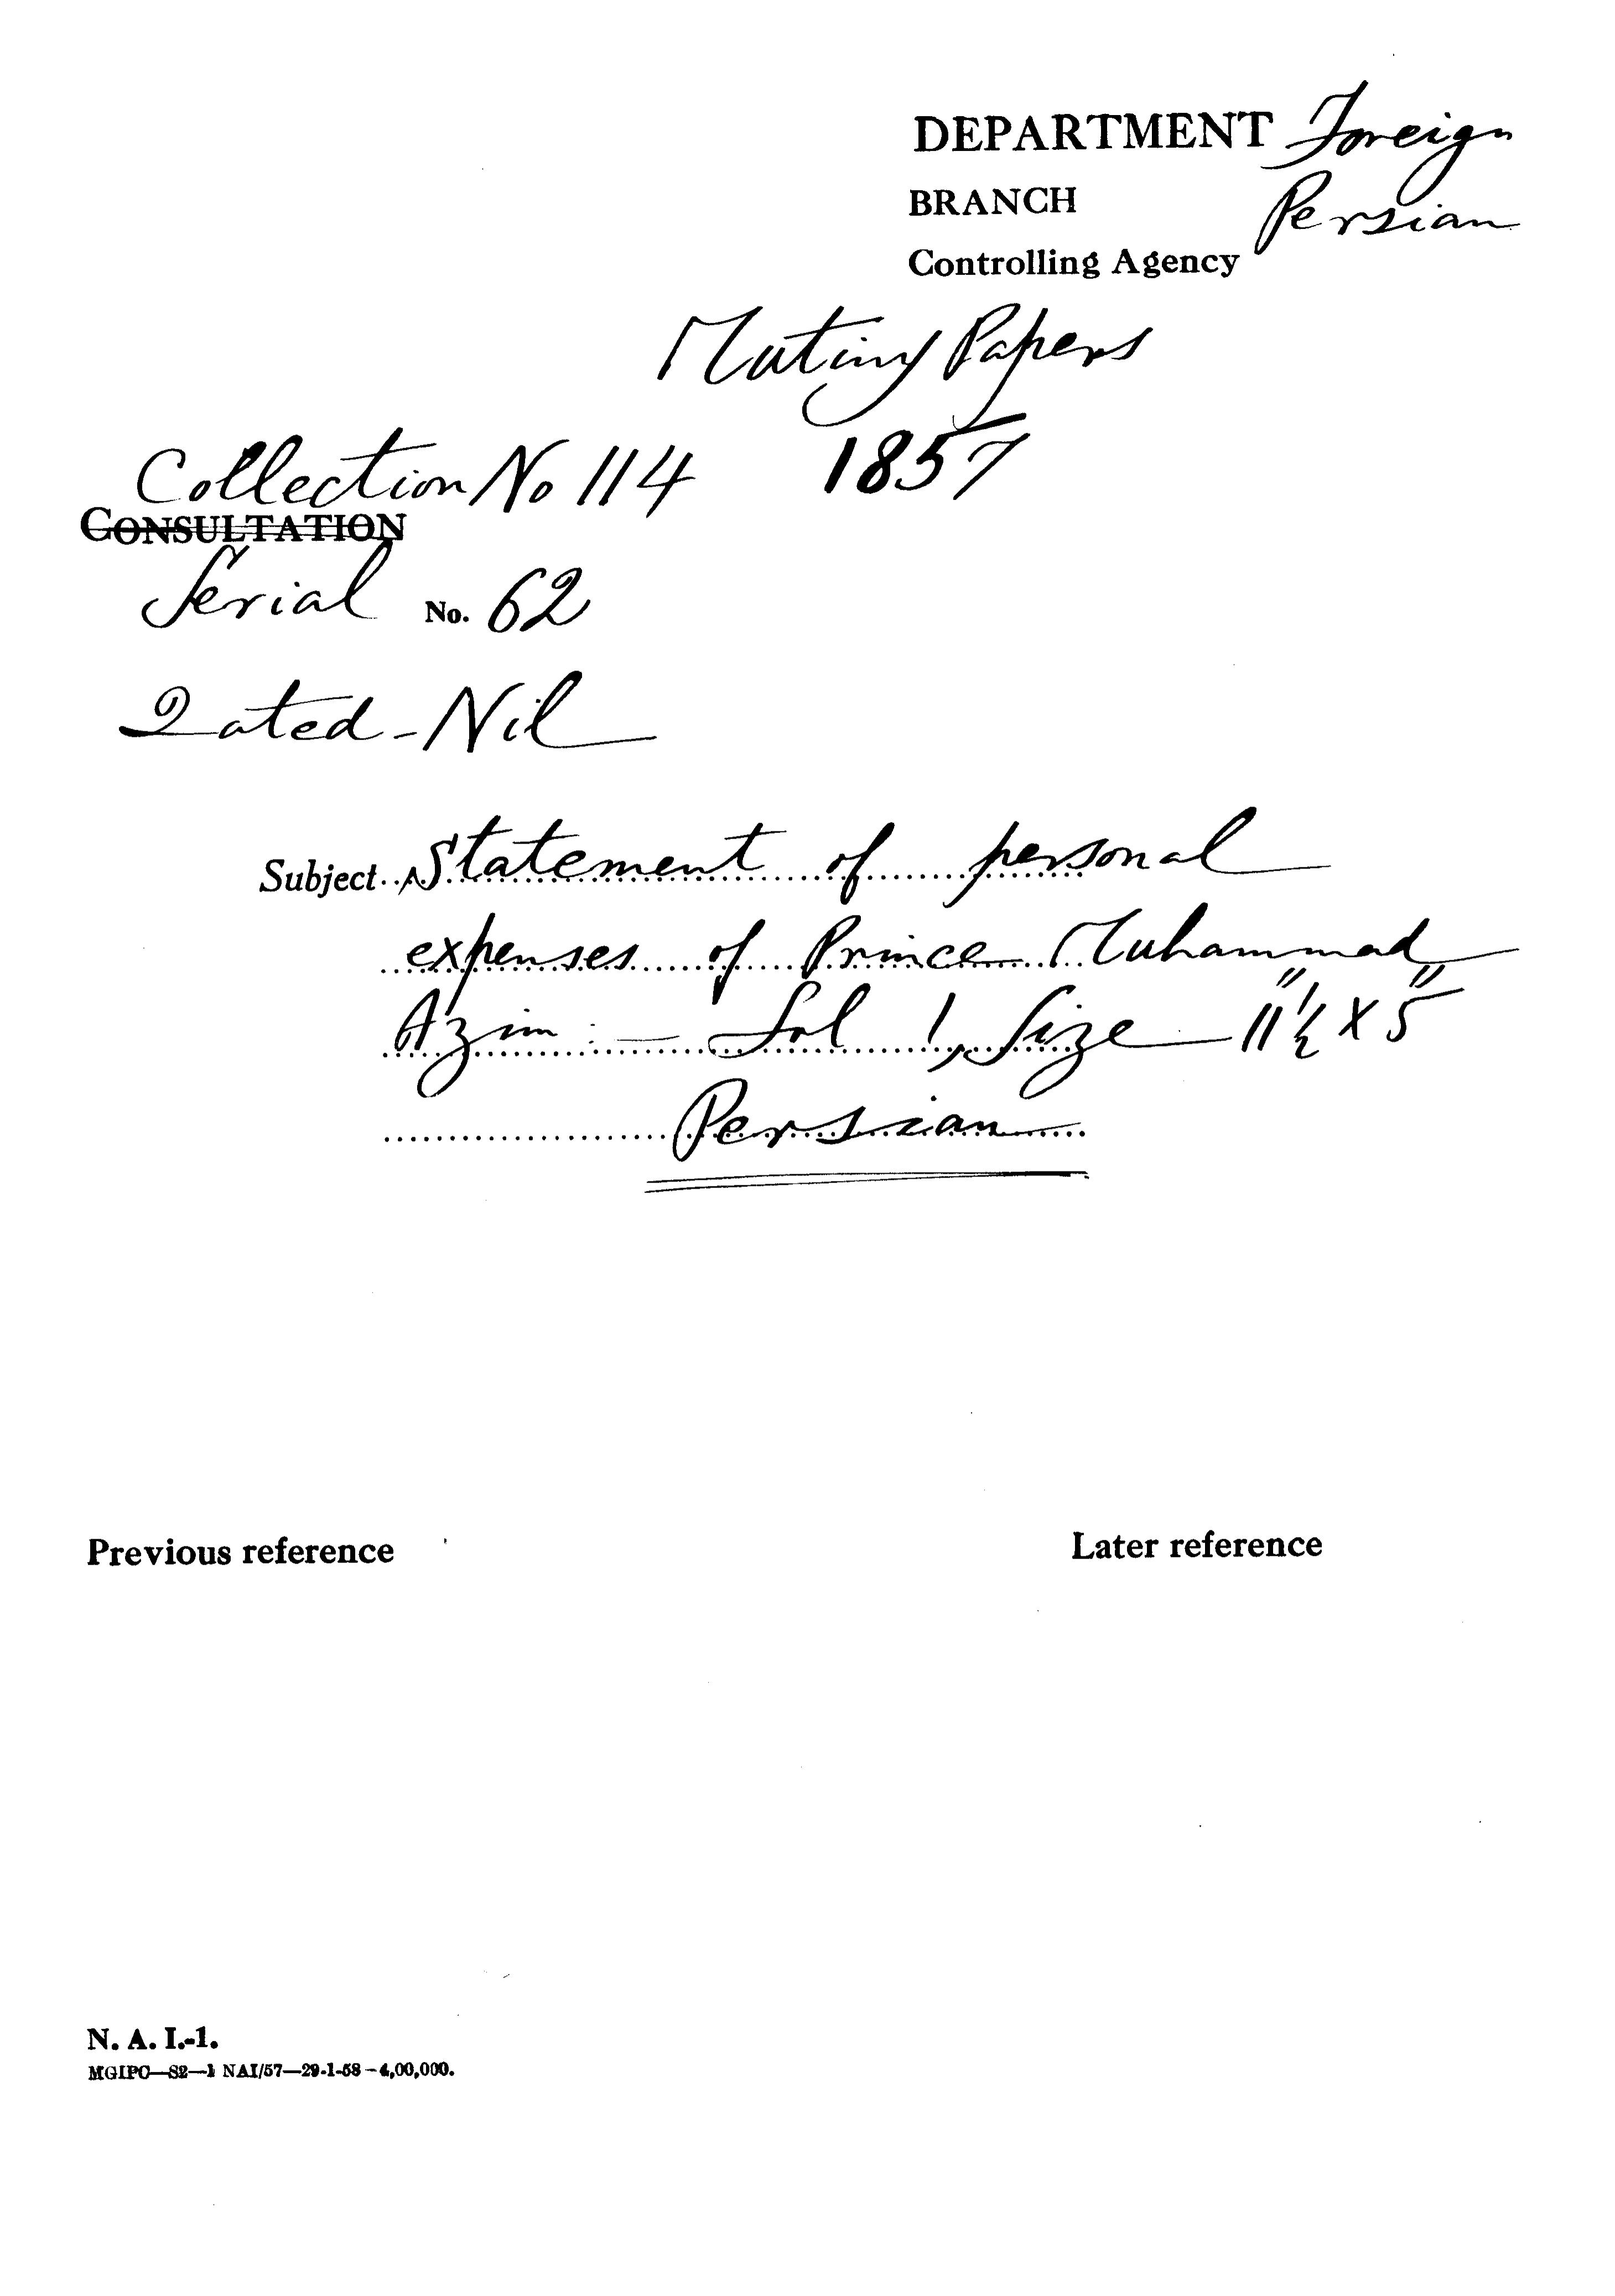 DEPARTMENT Foreign
BRANCH Persian
Controlling Agency
Mutiny Papers
1857
Collection No 114
CONSULTATION
Serial No. 62
Dated - Nil
Subject Statement of personal
expenses of Prince Muhammad
Azim :— Fol 1, Size 11"½ X 5"
Persian
Previous reference
Later reference
N. A. I.-1.
MGIPC—S2—1 NAI/57—29-1-58—4,00,000.